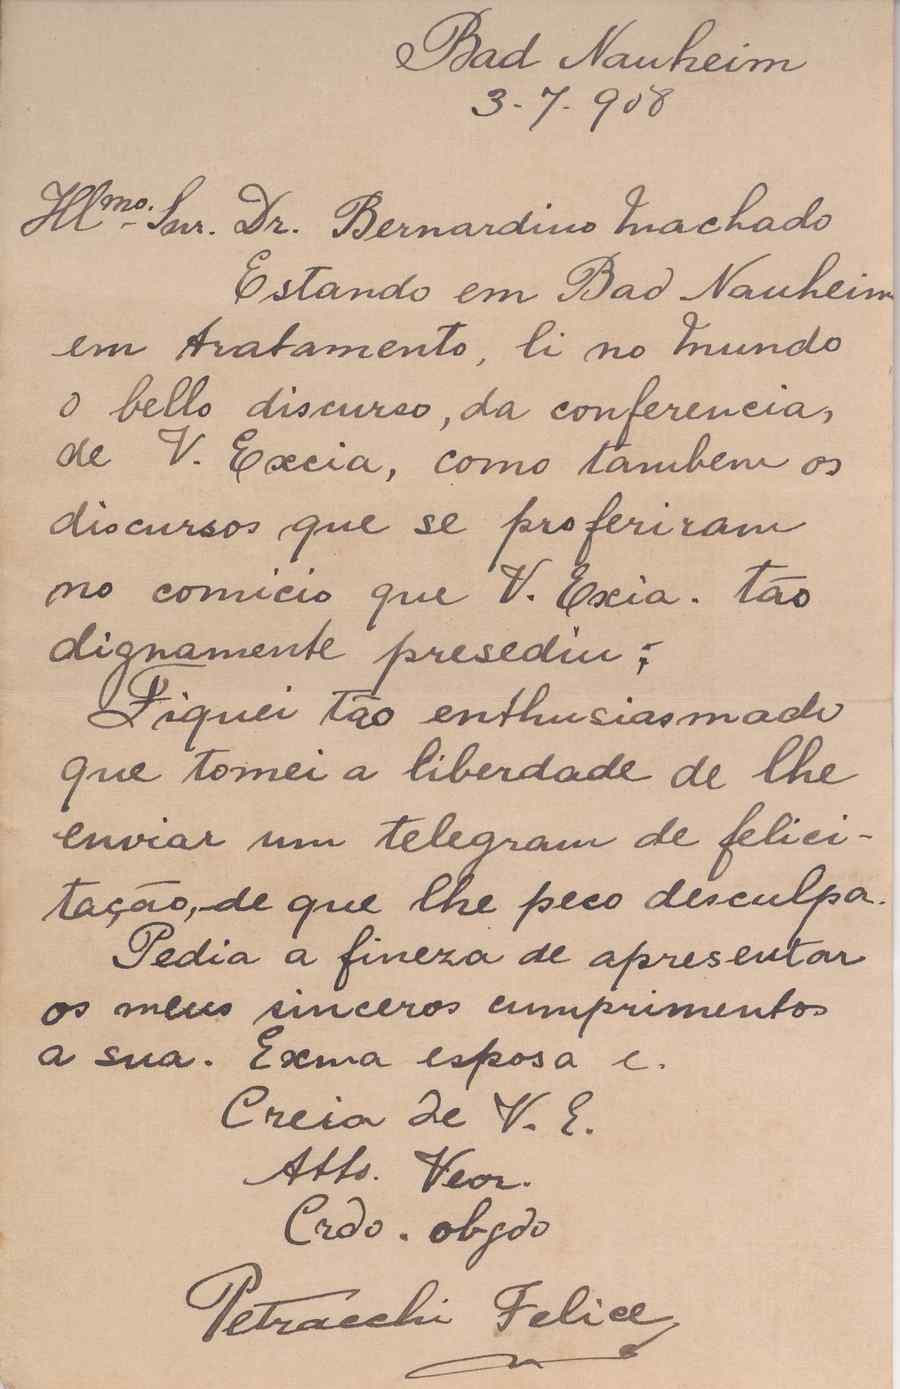 Bad Nauheim
3-7-908
Illmo. Snr. Dr. Bernardino Machado
Estando em Bad Nauheim
em tratamento, li no Mundo
o bello discurso, da conferencia,
de V. Excia, como tambem os
discursos que se proferiram
no comicio que V. Exia. tão
dignamente presediu;
Fiquei tão enthusiasmado
que tomei a liberdade de lhe
enviar um telegram de felici-
tação, de que lhe peco desculpa.
Pedia a fineza de apresentar
os meus sinceros cumprimentos
a sua. Exma esposa e.
Creia de V. E.
Atto. Veor.
Crdo. obgdo
Petracchi Felice